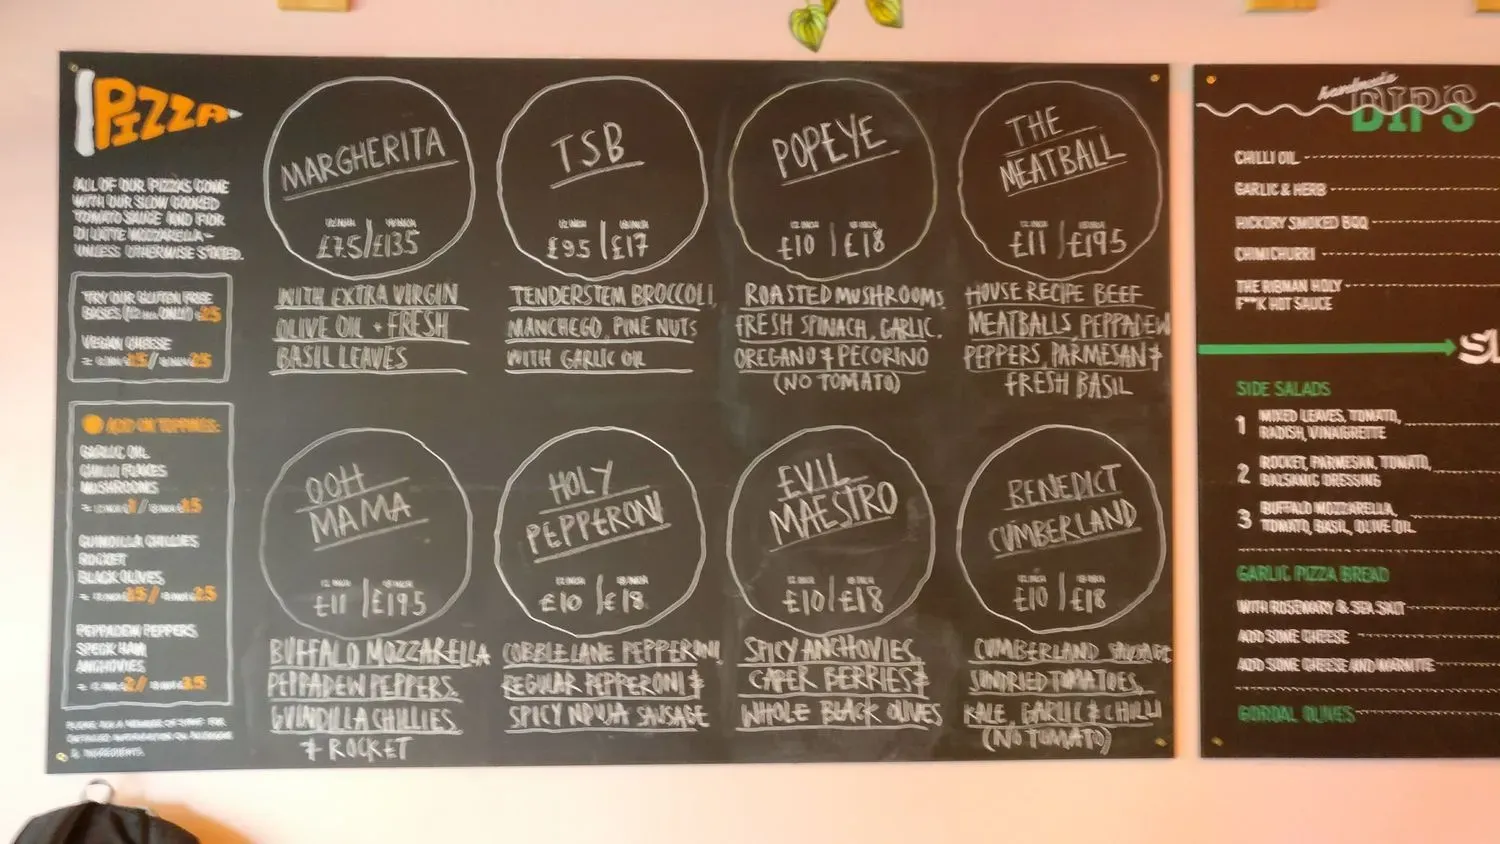 PIZZA
ALL OF OUR PIZZAS COME
WITH OUR SLOW COOKED
TOMATO SAUCE AND FIOR
DI LATTE MOZZARELLA ~
UNLESS OTHERWISE STATED.
TRY OUR GLUTEN FREE
BASES (12 INCH ONLY)
VEGAN CHEESE
ADD ON TOPPINGS:
GARLIC OIL
CHILLI FLAKES
MUSHROOMS
GUINDILLA CHILLIES
ROCKET
BLACK OLIVES
PEPPADEW PEPPERS
SPECK HAM
ANCHOVIES
MARGHERITA
12 INCH 18 INCH
£7.5/£13.5
WITH EXTRA VIRGIN
OLIVE OIL + FRESH
BASIL LEAVES
TSB
12 INCH 18 INCH
£9.5 | £17
TENDERSTEM BROCCOLI,
MANCHEGO, PINE NUTS
WITH GARLIC OIL
POPEYE
12 INCH 18 INCH
£10 | £18
ROASTED MUSHROOMS
FRESH SPINACH, GARLIC,
OREGANO & PECORINO
(NO TOMATO)
THE
MEATBALL
12 INCH 18 INCH
£11 | £19.5
HOUSE RECIPE BEEF
MEATBALLS, PEPPADEW
PEPPERS, PARMESAN &
FRESH BASIL
OOH
MAMA
12 INCH 18 INCH
£11 | £19.5
BUFFALO MOZZARELLA
PEPPADEW PEPPERS,
GUINDILLA CHILLIES,
& ROCKET
HOLY
PEPPERONI
12 INCH 18 INCH
£10 | £18
COBBLE LANE PEPPERONI,
REGULAR PEPPERONI &
SPICY NDUJA SAUSAGE
EVIL
MAESTRO
12 INCH 18 INCH
£10 | £18
SPICY ANCHOVIES,
CAPER BERRIES &
WHOLE BLACK OLIVES
BENEDICT
CUMBERLAND
12 INCH 18 INCH
£10 | £18
CUMBERLAND SAUSAGE
SUNDRIED TOMATOES,
KALE, GARLIC & CHILLI
(NO TOMATO)
handmade
DIPS
CHILLI OIL
GARLIC & HERB
HICKORY SMOKED BBQ
CHIMICHURRI
THE RIBMAN HOLY
F**K HOT SAUCE
SIDE SALADS
1 MIXED LEAVES, TOMATO,
RADISH, VINAIGRETTE
2 ROCKET, PARMESAN, TOMATO,
BALSAMIC DRESSING
3 BUFFALO MOZZARELLA,
TOMATO, BASIL, OLIVE OIL
GARLIC PIZZA BREAD
WITH ROSEMARY & SEA SALT
ADD SOME CHEESE
ADD SOME CHEESE AND MARMITE
GORDAL OLIVES